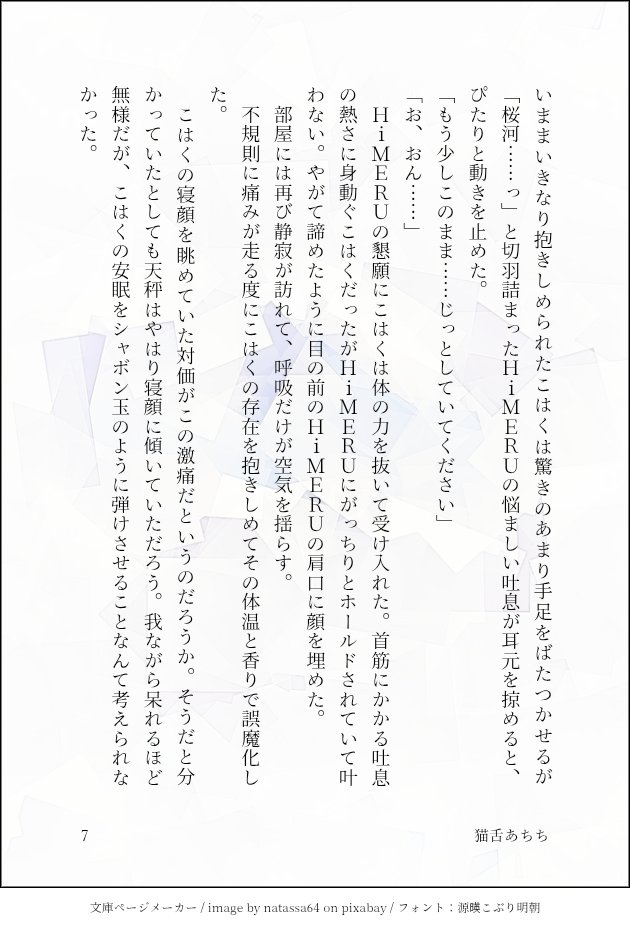 いままいきなり抱きしめられたこはくは驚きのあまり手足をばたつかせるが
「桜河……っ」と切羽詰まったＨｉＭＥＲＵの悩ましい吐息が耳元を掠めると、
ぴたりと動きを止めた。
「もう少しこのまま……じっとしていてください」
「お、おん……」
　ＨｉＭＥＲＵの懇願にこはくは体の力を抜いて受け入れた。首筋にかかる吐息
の熱さに身動ぐこはくだったがＨｉＭＥＲＵにがっちりとホールドされていて叶
わない。やがて諦めたように目の前のＨｉＭＥＲＵの肩口に顔を埋めた。
　部屋には再び静寂が訪れて、呼吸だけが空気を揺らす。
　不規則に痛みが走る度にこはくの存在を抱きしめてその体温と香りで誤魔化し
た。
　こはくの寝顔を眺めていた対価がこの激痛だというのだろうか。そうだと分
かっていたとしても天秤はやはり寝顔に傾いていただろう。我ながら呆れるほど
無様だが、こはくの安眠をシャボン玉のように弾けさせることなんて考えられな
かった。
猫舌あちち
7
文庫ページメーカー / image by natassa64 on pixabay / フォント：源暎こぶり明朝